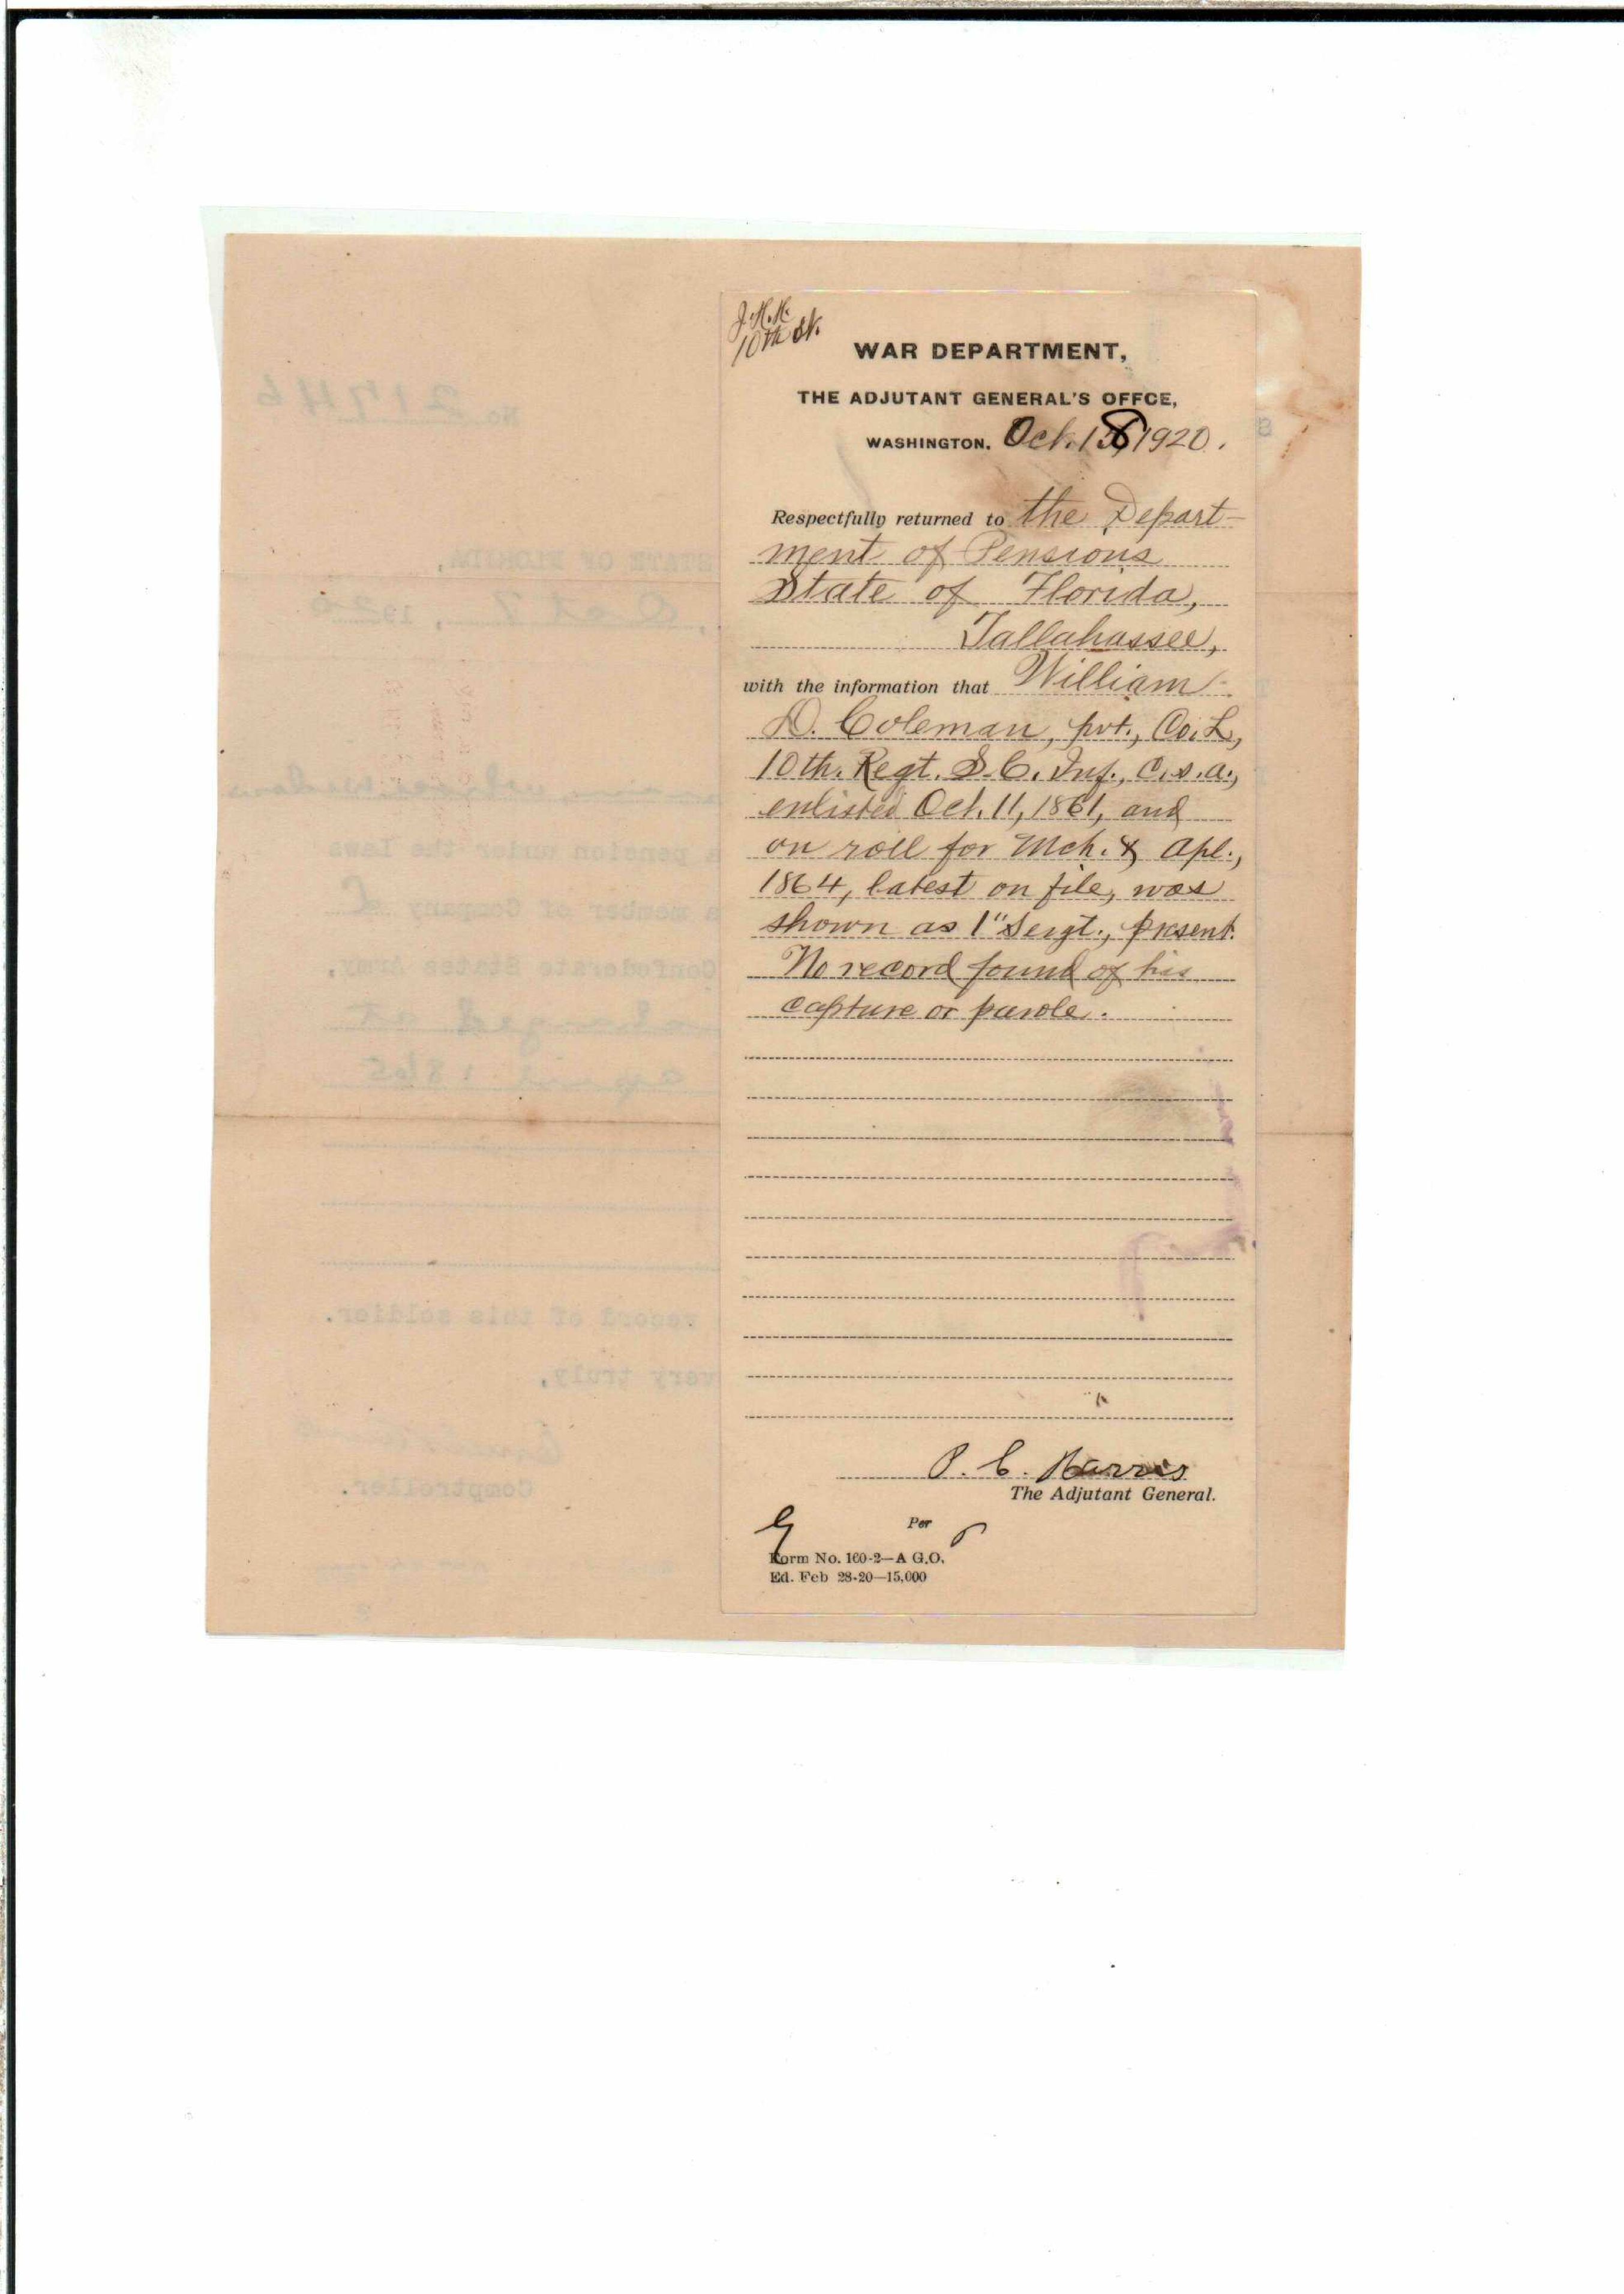 J.H.K.
10th St.
WAR DEPARTMENT,
THE ADJUTANT GENERAL'S OFFCE,
WASHINGTON, Oct. 18, 1920.
Respectfully returned to the Depart-
ment of Pensions
State of Florida,
Tallahassee,
with the information that William
D. Coleman, pvt., Co. L,
10th. Regt. S.C. Inf., C.S.A.,
enlisted Oct. 11, 1861, and
on roll for Mch. & Apl.,
1864, latest on file, was
shown as 1" Sergt., present.
No record found of his
capture or parole.
P. C. Harris
The Adjutant General.
Per
Form No. 160-2—A G.O.
Ed. Feb 28-20—15,000
No. 21746
STATE OF FLORIDA,
Oct 7, 1920
a pension under the laws
a member of Company L
Confederate States Army,
at
1865
record of this soldier.
very truly,
Comptroller.